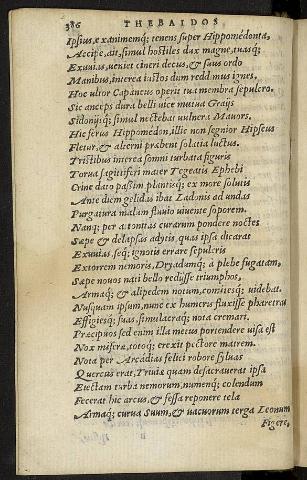 386 THEBAIDOS
Ipsius, exanimemq; tenens super Hippomedonta,
Accipe, ait, simul hostiles dux magne, tuasq;
Exuuias, ueniet cineri decus, & suus ordo
Manibus, interea iustos dum reddimus ignes,
Hoc ultor Capaneus operit tua membra sepulcro.
Sic anceps dura belli uice mutua Graijs
Sidonijsq; simul nectebat uulnera Mauors.
Hic ferus Hippomedon, illic non segnior Hipseus
Fletur, & alterni præbent solatia luctus.
Tristibus interea somni turbata figuris
Torua sagittiferi mater Tegeatis Ephebi
Crine dato passim plantisq; ex more solutis
Ante diem gelidas ibat Ladonis ad undas
Purgatura malum fluuio uiuente soporem.
Nanq; per attonitas curarum pondere noctes
Sæpe & delapsas adytis, quas ipsa dicarat
Exuuias, seq; ignotis errare sepulcris
Extorrem nemoris, Dryadumq; à plebe fugatam,
Sæpe nouos nati bello redisse triumphos,
Armaq; & alipedem notum, comitesq; uidebat.
Nusquam ipsum, nunc ex humeris fluxisse pharetras
Effigiesq; suas, simulacraq; nota cremari.
Præcipuos sed enim illa metus portendere uisa est
Nox miseræ, totoq; erexit pectore matrem.
Nota per Arcadias felici robore syluas
Quercus erat, Triuiæ quam desacrauerat ipsa
Electam turba nemorum, numenq; colendum
Fecerat hic arcus, & fessa reponere tela
Armaq; curua Suum, & uacuorum terga Leonum
Figere,